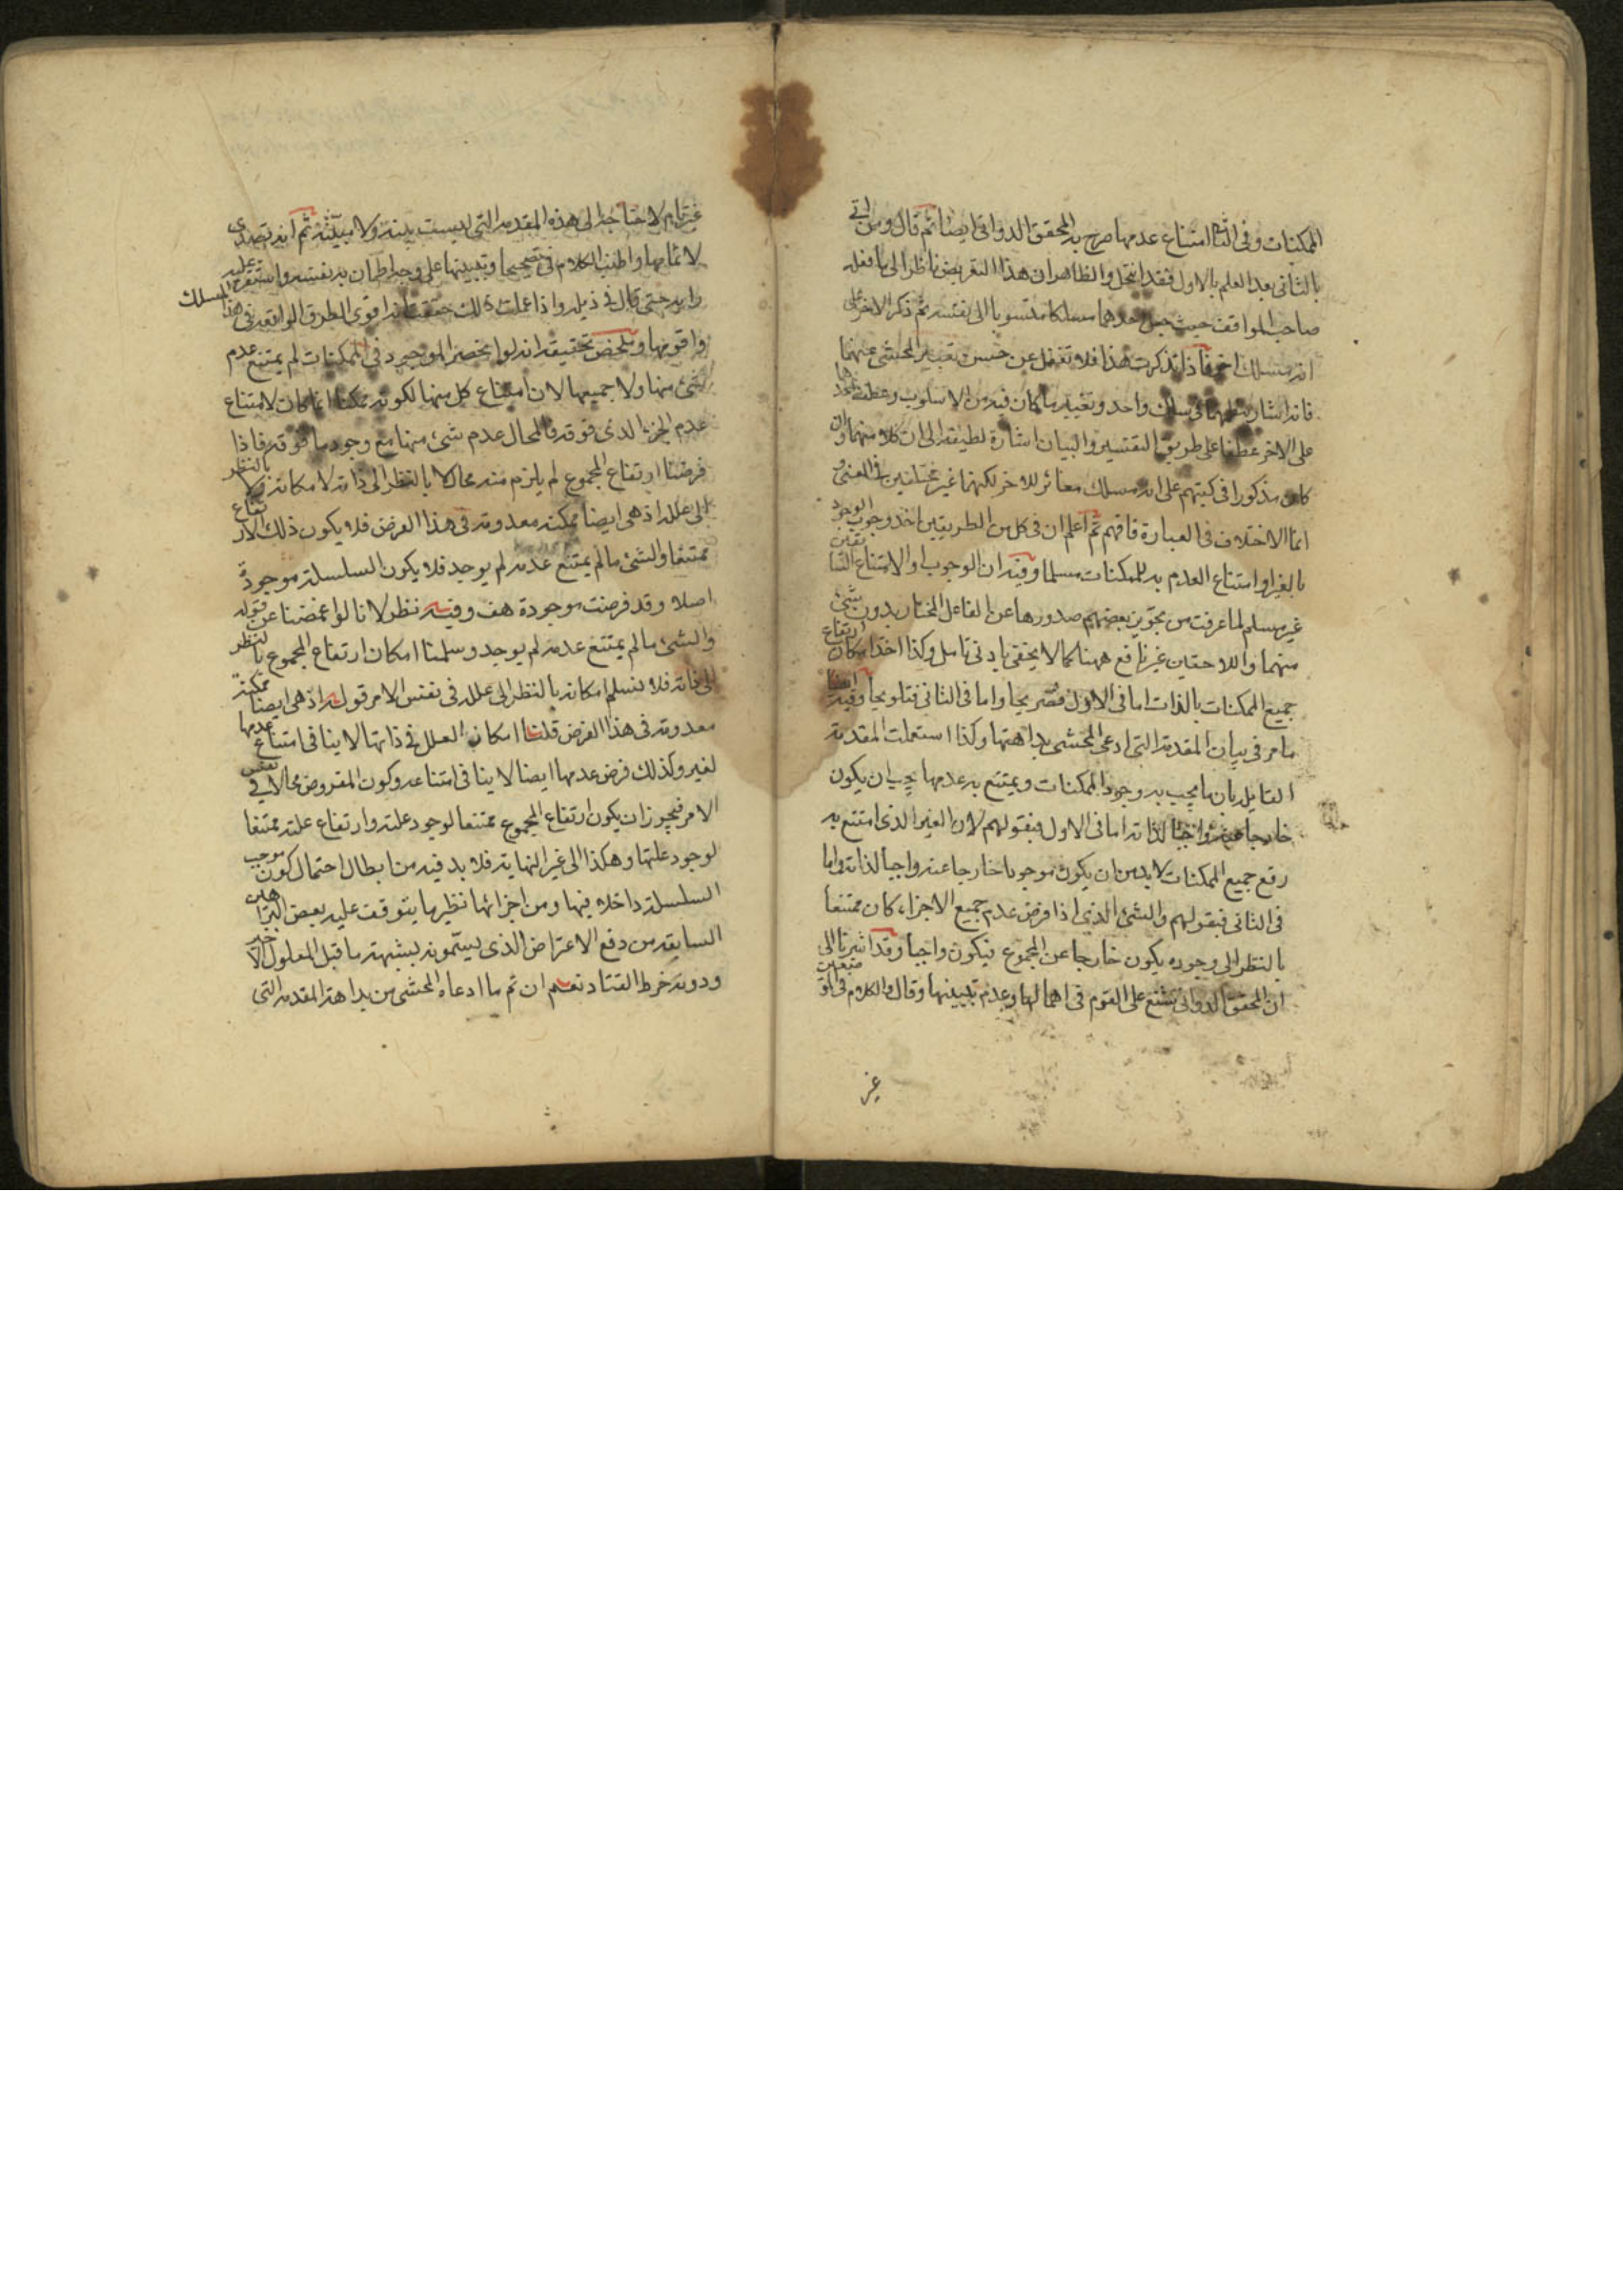 الممكنات وفى الثانى امتناع عدمها صرح به المحقق الدوانى ايضا ثم قال ومن اتى
بالثانى بعد العلم بالاول فقد انتحل والظاهر ان هذا التعريض ناظر الى ما فعله
صاحب المواقف حيث جعل احدهما مسلكا منسوبا الى نفسه ثم ذكر الاخر على
انه مسلك اخر فاذا تذكرت هذا فلا تغفل عن حسن تعبير المحشى عنهما
فانه اشار بنظمهما فى سلك واحد وتغيير ما كان فيه من الاسلوب وعطف احدهما
على الاخر عطفا على طريق التفسير والبيان اشارة لطيفة الى ان كلا منهما وان
كان مذكورا فى كتبهم على انه مسلك مغائر للاخر لكنهما غير مختلفين فى المعنى و
انما الاختلاف فى العبارة فافهم ثم اعلم ان فى كل من الطريقين اخذ وجوب الوجود
بالغير او امتناع العدم به للممكنات مسلما وفيه ان الوجوب او الامتناع السابقين
غير مسلم لما عرفت من تجويز بعضهم صدورها عن الفاعل المختار بدون شئ
منهما واللاحقين غير نافع ههنا كما لا يخفى بادنى تامل وكذا اخذ امكان ارتفاع
جميع الممكنات بالذات اما فى الاول فصريحا واما فى الثانى فتلويحا وفيه ايضا
ما مر فى بيان المقدمة التى ادعى المحشى بداهتها وكذا استعملت المقدمة
القايلة بان ما يجب به وجود الممكنات ويمتنع به عدمها يجب ان يكون
خارجا عنها واجبا لذاته اما فى الاول فبقولهم لان الغير الذى امتنع به
رفع جميع الممكنات لا بد من ان يكون موجودا خارجا عنه واجبا لذاته واما
فى الثانى فبقولهم والشئ الذى اذا فرض عدم جميع الاجزاء كان ممتنعا
بالنظر الى وجوده يكون خارجا عن المجموع فيكون واجبا وقد اشرنا الى
ان المحقق الدوانى شنع على القوم فى اهمالها وعدم تبيينها وقال والكلام فى الموضعين
غير
غير تام لاحتياجه الى هذه المقدمة التى ليست بينة ولا مبينة ثم انه تصدى
لاتمامها واطنب الكلام فى تصحيحها وتبيينها على وجه اطمان به نفسه واستقر عليه
رايه حتى قال فى ذيله واذا علمت ذلك حققت انه اقوى الطرق الواقعة فى هذا المسلك
واقومها وملخص تحقيقه انه لو انحصر الموجود فى الممكنات لم يمتنع عدم
شئ منها ولا جميعها لان امتناع كل منها لكونه ممكنا انما كان لامتناع
عدم الجزء الذى فوقه فالمحال عدم شئ منها مع وجود ما فوقه فاذا
فرضنا ارتفاع المجموع لم يلزم منه محال لا بالنظر الى ذاته لامكانه ولا بالنظر
الى علله اذ هى ايضا ممكنة معدومة فى هذا الفرض فلا يكون ذلك الارتفاع
ممتنعا والشئ ما لم يمتنع عدمه لم يوجد فلا يكون السلسلة موجودة
اصلا وقد فرضت موجودة هف وفيه نظر لانا لو اغمضنا عن قوله
والشئ ما لم يمتنع عدمه لم يوجد وسلمنا امكان ارتفاع المجموع بالنظر
الى ذاته فلا نسلم امكانه بالنظر الى علله فى نفس الامر قوله اذ هى ايضا ممكنة
معدومة فى هذا الفرض قلنا امكان العلل فى ذاتها لا ينافى امتناع عدمها
لغيره وكذلك فرض عدمها ايضا لا ينافى امتناعه وكون المفروض محالا فى نفس
الامر فيجوز ان يكون ارتفاع المجموع ممتنعا لوجود علته وارتفاع علته ممتنعا
لوجود علتها وهكذا الى غير النهاية فلا بد فيه من ابطال احتمال كون موجب
السلسلة داخلا فيها ومن اجزائها نظير ما يتوقف عليه بعض البراهين
السابقة من دفع الاعتراض الذى يسمونه بشبهة ما قبل المعلول الاخير
ودونه خرط القتاد نعم ان تم ما ادعاه المحشى من بداهة المقدمة التى